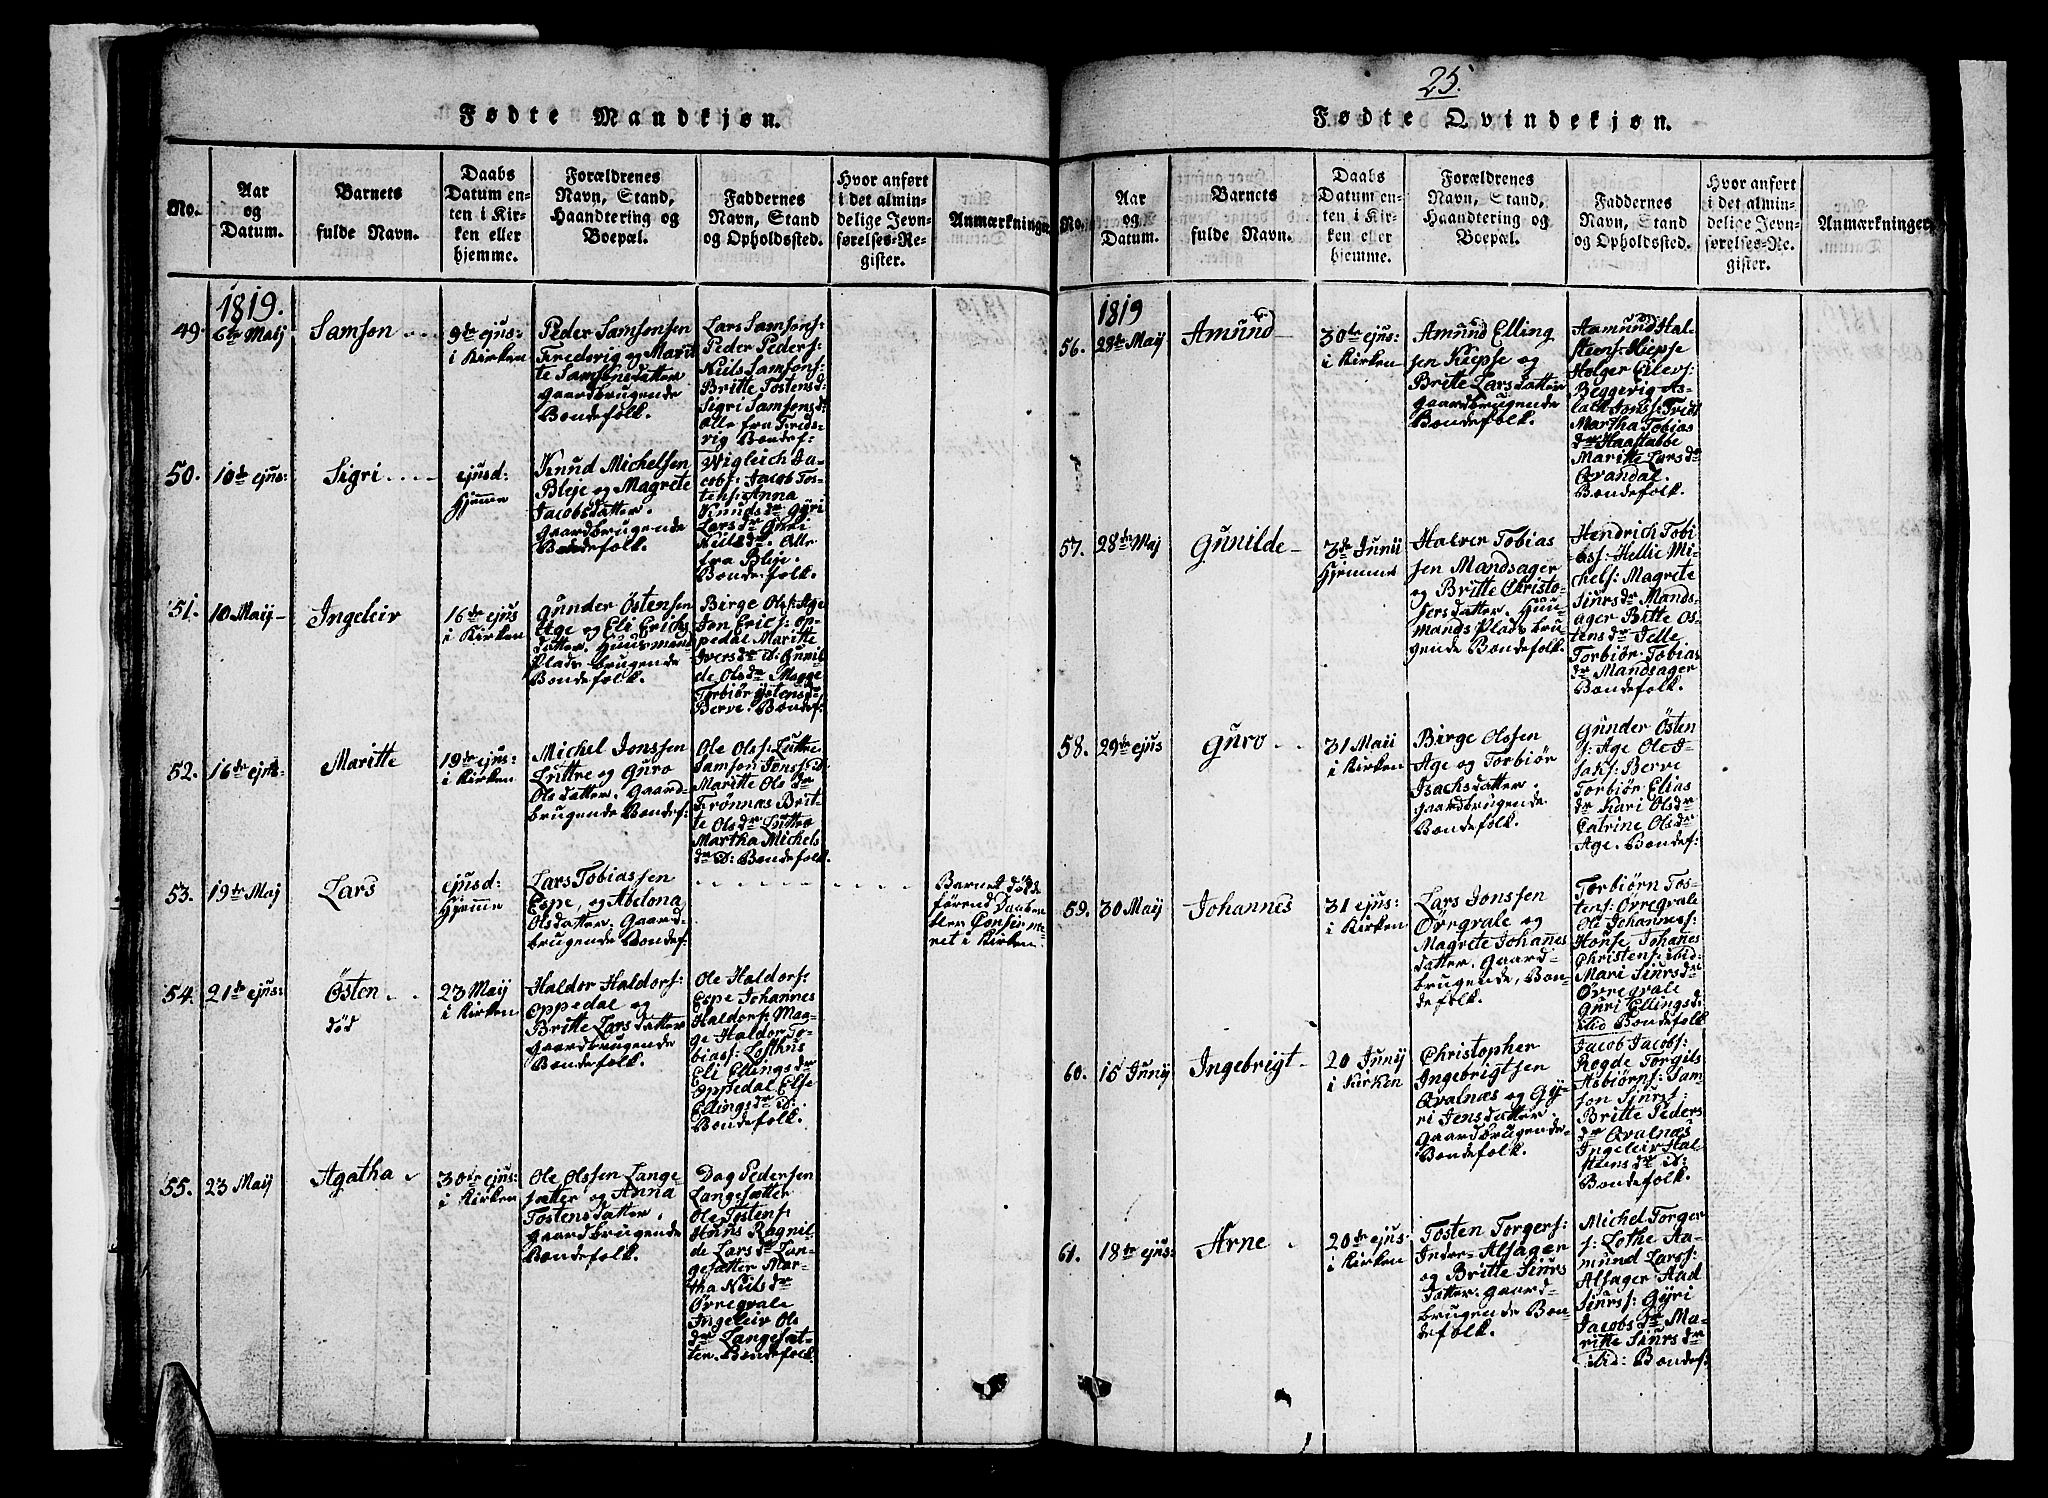 Fødte Mandkjøn.
No.
Aar
og
Datum.
Barnets
fulde Navn.
Daabs
Datum en-
ten i Kir-
ken eller
hjemme.
Forældrenes
Navn, Stand,
Haandtering og
Boepæl.
Faddernes
Navn, Stand
og Opholdssted.
Hvor anført
i det almin-
delige Jevn-
førelses-Re-
gister.
Anmærkninger
1819.
49.
6te Maij
Samson
9de ejus:
i Kirken
Peder Samsonsen
og Marit
te Samsonsdatter
gaardbrugende
Bondefolk.
Lars Samsons:
Peder Peders:
Niels Samsons:
Britte Tostensd:
Sigri Samsonsdr
alle fra
Bondef:
50.
10de ejus:
Sigri
ejusd:
Hjemme
Knud Michelsen
Bleje og Magrete
Jacobsdatter.
gaardbrugende
Bondefolk.
Wigleich Ja-
cobs: Jacob Tos-
tens: Anna
Knudsdr Gyri
Larsdr Guri
Nielsdr. Alle
fra Bleje.
Bondefolk.
51.
10 Maij
Ingeleir
16de ejus
i Kirken
Gunder Østensen
Age og Eli Erichs
datter. Huusmand
Plads brugende
Bondefolk.
Birge Ols: Age
Jon Erics: Op-
pedal Maritte
Iversdr id: Gunil
de Olsdr Magge
Torbiør Østensdr
Berve. Bondef:
52.
16de ejus:
Maritte
19de ejus:
i Kirken
Michel Jonssen
Luttre og Guro
Olsdatter. Gaard-
brugende Bondef.
Ole Olss: Luttre
Samson Jonss: id
Maritte Olsdr
Trønnæs Brit-
te Olsdr Luttro
Martha Michels
dr id: Bondefolk.
53.
19de Maij
Lars
ejusd:
Hjemme
Lars Tobiassen
Espe, og Abelona
Olsdatter. Gaard-
brugende Bondef.
Barnet døde
førend Daaben
blev Confirme-
ret i Kirken
54.
21de ejus:
Østen
død
23 Maij
i Kirken
Haldor Haldors:
Oppedal og
Britte Larsdatter
Gaardbrugende
Bondefolk.
Ole Haldors:
Espe Johannes
Haldors: Mag-
ge Haldor To-
bias: Lofthus
Eli Ellingsdr
Oppedal Else
Ellingsdr id:
Bondefolk.
55.
23 Maij
Agatha
30te ejus:
i Kirken
Ole Olssen Lange-
sætter og Anna
Tostensdatter.
gaardbrugende
Bondefolk.
Dag Pedersen
Langesætter
Ole Tostens:
Huus Ragnil-
de Larsdr Lan-
gesætter Mar-
tha Nielsdr
Ørregrale
Ingeleir Ols
dr Langesæt-
ter. Bondefolk.
25.
Fødte Qvindekjøn.
No.
Aar
og
Datum.
Barnets
fulde Navn.
Daabs
Datum en-
ten i Kir-
ken eller
hjemme.
Forældrenes
Navn, Stand,
Haandtering og
Boepæl.
Faddernes
Navn, Stand
og Opholdssted.
Hvor anført
i det almin-
delige Jevn-
førelses-Re-
gister.
Anmærkninger
1819
56.
28de Maij
Amund
30te ejus:
i Kirken
Amund Elling
sen Kiepse og
Britte Larsdatter
gaardbrugende
Bondefolk.
Aamund Hal-
steens: Kiepse
Holger Eilevs:
Beggevig As-
lach Jons:
Martha Tobias
dr Haastabbe
Maritte Larsdr
Qvandal.
Bondefolk.
57.
28de Maj
Gunilde
3de Junij
Hjemme
Halver Tobias
sen Mandsager
og Britte Christo-
fersdatter. Huus-
mands Plads bru-
gende Bondefolk.
Hendrich Tobi-
ass: Hellie Mi-
chels: Magrete
Siursdr Mands-
ager Britte Os-
tensdr Jelle
Torbiør Tobias
dr Mandsager
Bondefolk.
58.
29de ejus
Guro
31 Maij
i Kirken
Birge Olssen
Age og Torbiør
Isachsdatter.
gaardbrugende
Bondefolk.
Gunder Østen
s: Age Ole I-
saks: Berve
Torbiør Elias
dr Kari Olsdr
Catrine Olsdr
Age. Bondef:
59.
30 Maij
Johannes
31 ejus:
i Kirken
Lars Jonssen
Ørregrale og
Magrete Johannes
datter. Gaard-
brugende, Bon-
defolk.
Torbiørn Tos-
tens: Ørregrale
Ole Johanness:
House Johanes
Christens: ibid
Mari Siursdr
Øvregrale
Guri Ellingsdr
itid Bondefolk
60.
15 Junij
Ingebrigt
20 Junij
i Kirken
Christopher
Ingebrigtsen
Qvalnæs og Gy-
ri Jensdatter.
Gaardbrugende
Bondefolk.
Jacob Jacobs:
Rogde Torgils
Asbiørns: Sam-
son Siurs:
Britte Peders
dr Qvalnæs
Ingeleir Hal-
steensdr id:
Bondefolk.
61.
18de ejus:
Arne
20de ejus:
i Kirken
Tosten Torgers:
Indre-Alsager
og Britte Siurs
datter. gaard-
brugende Bon-
defolk.
Michel Torger
s: Lothe Aa-
mund Larss:
Alsager Aad
Siurs: Gyri
Jacobsdr Ma-
ritte Siursdr
itid: Bondef: